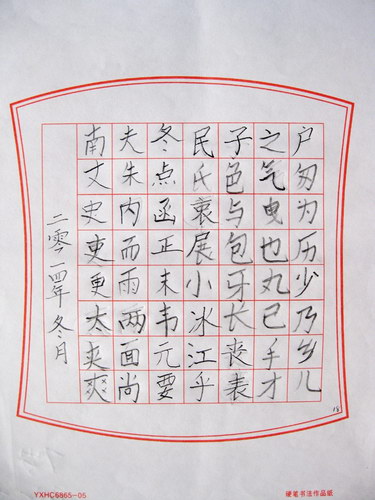 户匆为历少乃乡儿
之气电也丸已手才
子色与包牙长丧表
民氏衷展小冰江乎
冬点函正末韦元要
夫朱内而雨两面尚
南丈史吏更太夹爽
二零一四年冬月
18
YXHC6865-05
硬笔书法作品纸